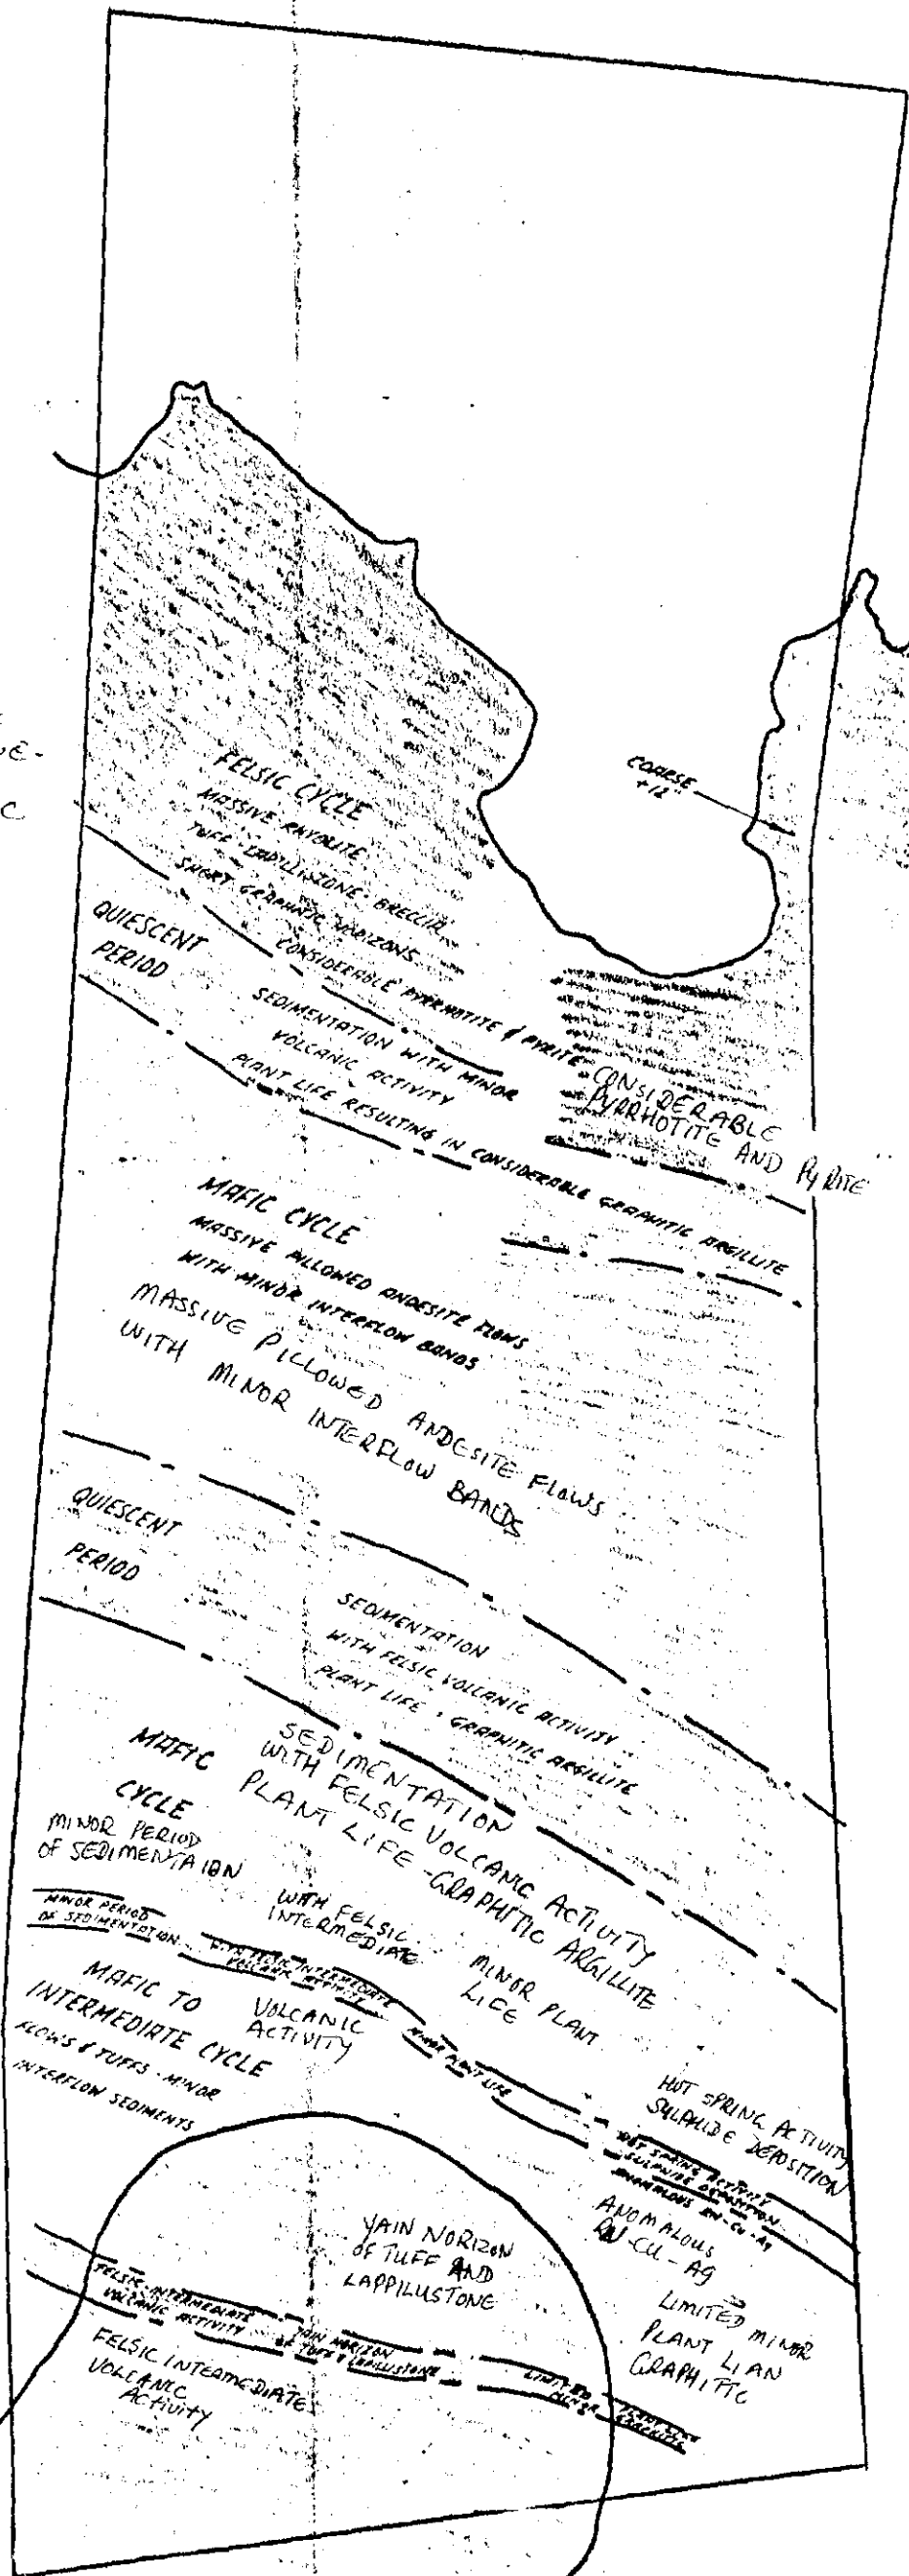 FELSIC CYCLE
MASSIVE RHYOLITE
SHORT GRAPHITIC HORIZONS
CONSIDERABLE PYRRHOTITE & PYRITE
COARSE
+12"
QUIESCENT
PERIOD
SEDIMENTATION WITH MINOR
VOLCANIC ACTIVITY
PLANT LIFE RESULTING IN CONSIDERABLE GRAPHITIC ARGILLITE
CONSIDERABLE
PYRRHOTITE
AND PyRITE
MAFIC CYCLE
MASSIVE PILLOWED ANDESITE FLOWS
WITH MINOR INTERFLOW BANDS
MASSIVE PILLOWED ANDESITE FLOWS
WITH MINOR INTERFLOW BANDS
QUIESCENT
PERIOD
SEDIMENTATION
WITH FELSIC VOLCANIC ACTIVITY
PLANT LIFE - GRAPHITIC ARGILLITE
SEDIMENTATION
WITH FELSIC VOLCANIC ACTIVITY
PLANT LIFE - GRAPHITIC ARGILLITE
MAFIC
CYCLE
MINOR PERIOD
OF SEDIMENTAION
WITH FELSIC
INTERMEDIATE
MINOR PERIOD
OF SEDIMENTATION
WITH FELSIC INTERMEDIATE
VOLCANIC ACTIVITY
VOLCANIC
ACTIVITY
MINOR PLANT
LICE
MINOR PLANT LIFE
MAFIC TO
INTERMEDIATE CYCLE
FLOWS & TUFFS - MINOR
INTERFLOW SEDIMENTS
HUT SPRING ACTIVITY
SULPHIDE DEPOSITION
HOT SPRING ACTIVITY
SULPHIDE DEPOSITION
ANOMALOUS ZN-CU-Ag
ANOMALOUS
RN-CU-Ag
YAIN NORIZON
OF TUFF AND
LAPPILUSTONE
LIMITED MINOR
PLANT LIAN
GRAPHITIC
FELSIC-INTERMEDIATE
VOLCANIC ACTIVITY
HORIZON
OF TUFF & LAPILLISTONE
LIMITED
MINOR
PLANT LIFE
GRAPHITIC
FELSIC INTERMEDIATE
VOLCANIC
ACTIVITY